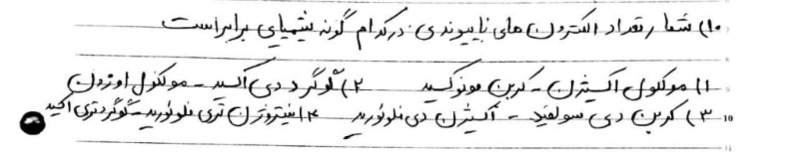 ۱۰) شمار تعداد الکترون های ناپیوندی در کدام گونه شیمیایی برابر است
۱) مولکول اکسیژن - کربن مونوکسید ۲) گوگرد دی اکسید - مولکول اوزون
۳) کربن دی سولفید - اکسیژن دی فلوئورید ۴) نیتروژن تری فلوئورید - گوگرد تری اکسید